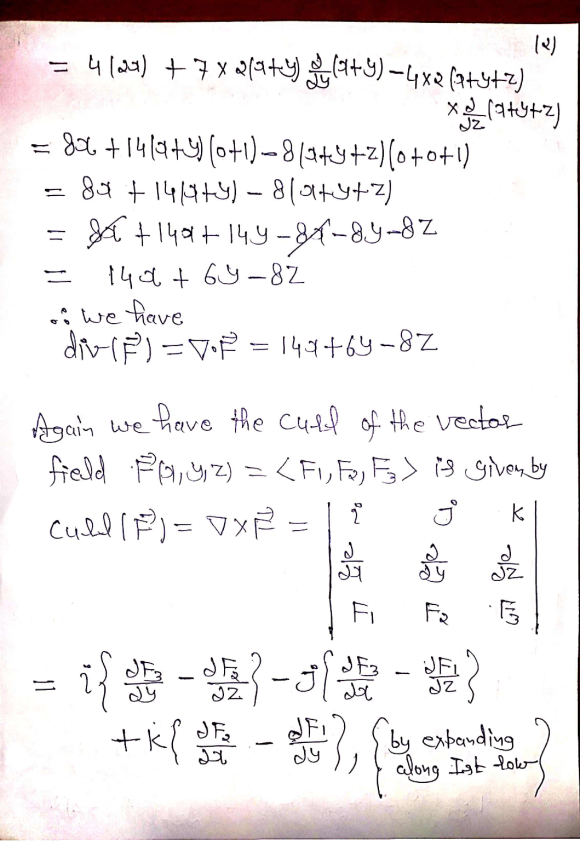 (2)
= 4(2x) + 7×2(x+y) ∂/∂y(x+y) – 4×2(x+y+z)
× ∂/∂z(x+y+z)
= 8x + 14(x+y)(0+1) – 8(x+y+z)(0+0+1)
= 8x + 14(x+y) – 8(x+y+z)
= 8x + 14x + 14y – 8x – 8y – 8z
= 14x + 6y – 8z
∴ we have
div(F⃗) = ∇·F⃗ = 14x+6y–8z
Again we have the curl of the vector
field F⃗(x,y,z) = <F₁, F₂, F₃> is given by
curl(F⃗) = ∇×F⃗ = | i j k |
| ∂/∂x ∂/∂y ∂/∂z |
| F₁ F₂ F₃ |
= i{∂F₃/∂y – ∂F₂/∂z} – j{∂F₃/∂x – ∂F₁/∂z}
+ k{∂F₂/∂x – ∂F₁/∂y}, {by expanding
along Ist row}